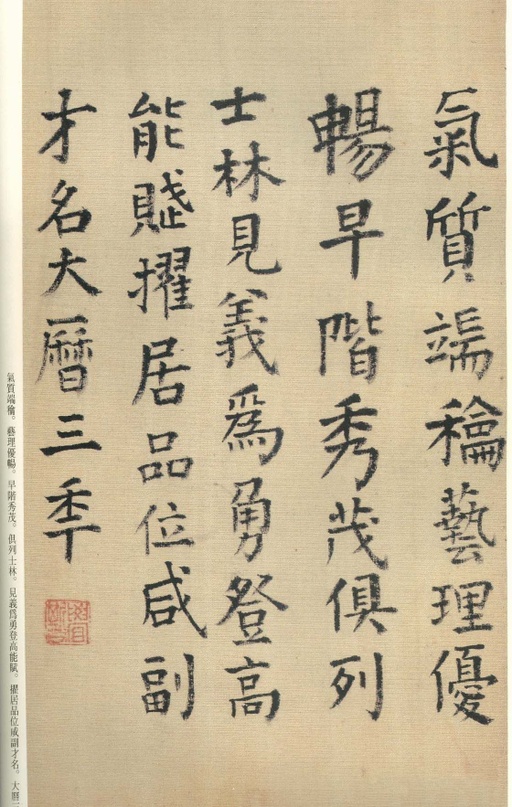 氣質端穆藝理優
暢早階秀茂俱列
士林見義為勇登高
能賦擢居品位咸副
才名大曆三年
氣質端穆。藝理優暢。早階秀茂。俱列士林。見義爲勇登高能賦。擢居品位咸副才名。大曆三